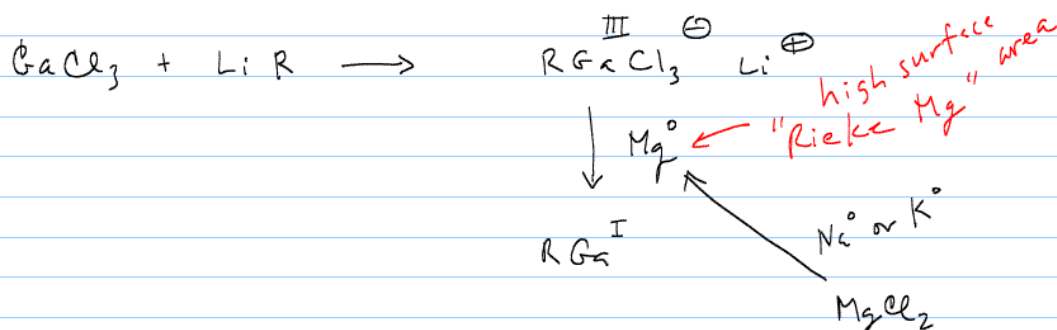 GaCl3 + LiR → RGaCl3 ⊖ Li ⊕
III
high surface area
"Rieke Mg"
Mg°
Na° or K°
RGa I
MgCl2